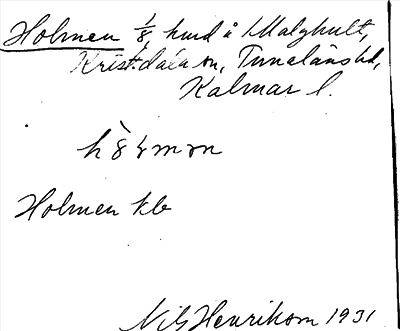 Holmen 1/8 hmd å Malghult,
Kristdala sn, Tunaläns hd,
Kalmar l.
Holmen kb
Nils Henrikson 1931